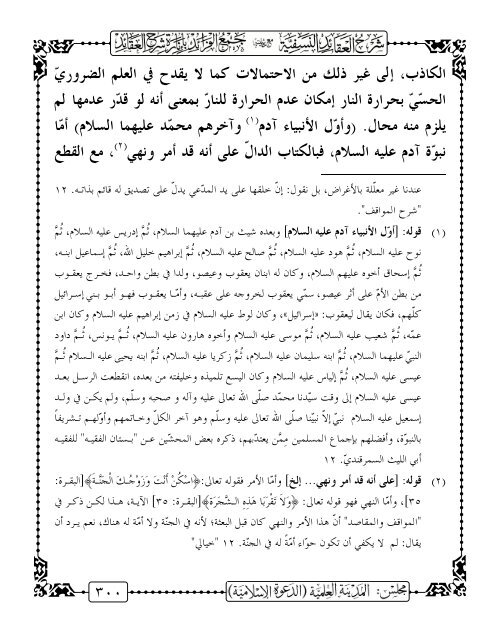 شرح العقائد النسفية مع جمع الفرائد بإنارة شرح العقائد
الكاذب، إلى غير ذلك من الاحتمالات كما لا يقدح في العلم الضروريّ
الحسّيّ بحرارة النار إمكان عدم الحرارة للنار بمعنى أنه لو قدّر عدمها لم
يلزم منه محال. (وأوّل الأنبياء آدم(١) وآخرهم محمّد عليهما السلام) أمّا
نبوّة آدم عليه السلام، فبالكتاب الدالّ على أنه قد أمر ونهي(٢)، مع القطع
عندنا غير معلّلة بالأغراض، بل نقول: إنّ خلقها على يد المدّعي يدلّ على تصديق له قائم بذاته. ١٢
"شرح المواقف".
(١) قوله: [أوّل الأنبياء آدم عليه السلام] وبعده شيث بن آدم عليهما السلام، ثُمَّ إدريس عليه السلام، ثُمَّ
نوح عليه السلام، ثُمَّ هود عليه السلام، ثُمَّ صالح عليه السلام، ثُمَّ إبراهيم خليل الله، ثُمَّ إسماعيل ابنه،
ثُمَّ إسحاق أخوه عليهم السلام، وكان له ابنان يعقوب وعيصو، ولدا في بطن واحد، فخرج يعقوب
من بطن الأمّ على أثر عيصو، سمّي يعقوب لخروجه على عقبه، وأمّا يعقوب فهو أبو بني إسرائيل
كلّهم، فكان يقال ليعقوب: «إسرائيل»، وكان لوط عليه السلام في زمن إبراهيم عليه السلام وكان ابن
عمّه، ثُمَّ شعيب عليه السلام، ثُمَّ موسى عليه السلام وأخوه هارون عليه السلام، ثُمَّ يونس، ثُمَّ داود
النبيّ عليهما السلام، ثُمَّ ابنه سليمان عليه السلام، ثُمَّ زكريا عليه السلام، ثُمَّ ابنه يحيى عليه السلام ثُمَّ
عيسى عليه السلام، ثُمَّ إلياس عليه السلام وكان اليسع تلميذه وخليفته من بعده، انقطعت الرسل بعد
عيسى عليه السلام إلى وقت سيّدنا محمّد صلّى الله تعالى عليه وآله و صحبه وسلّم، ولم يكن في ولد
إسمعيل عليه السلام نبيّ إلاّ نبيّنا صلّى الله تعالى عليه وسلّم وهو آخر الكلّ وخاتمهم وأوّلهم تشريفاً
بالنبوّة، وأفضلهم بإجماع المسلمين مِمَّن يعتدّبهم، ذكره بعض المحشّين عن "بستان الفقيه" للفقيه
أبي الليث السمرقنديّ. ١٢
(٢) قوله: [على أنه قد أمر ونهي... إلخ] وأمّا الأمر فقوله تعالى: ﴿اسْكُنْ أَنْتَ وَزَوْجُكَ الْجَنَّةَ﴾[البقرة:
٣٥]، وأمّا النهي فهو قوله تعالى: ﴿وَلَا تَقْرَبَا هَذِهِ الشَّجَرَةَ﴾[البقرة: ٣٥] الآية، هذا لكن ذكر في
"المواقف والمقاصد" أنّ هذا الأمر والنهي كان قبل البعثة؛ لأنه في الجنّة ولا أمّة له هناك، نعم يرد أن
يقال: لم لا يكفي أن تكون حوّاء أمّةً له في الجنّة. ١٢ "خيالي"
مجلس: المدينة العلمية (الدعوة الإسلامية)
٣٠٠